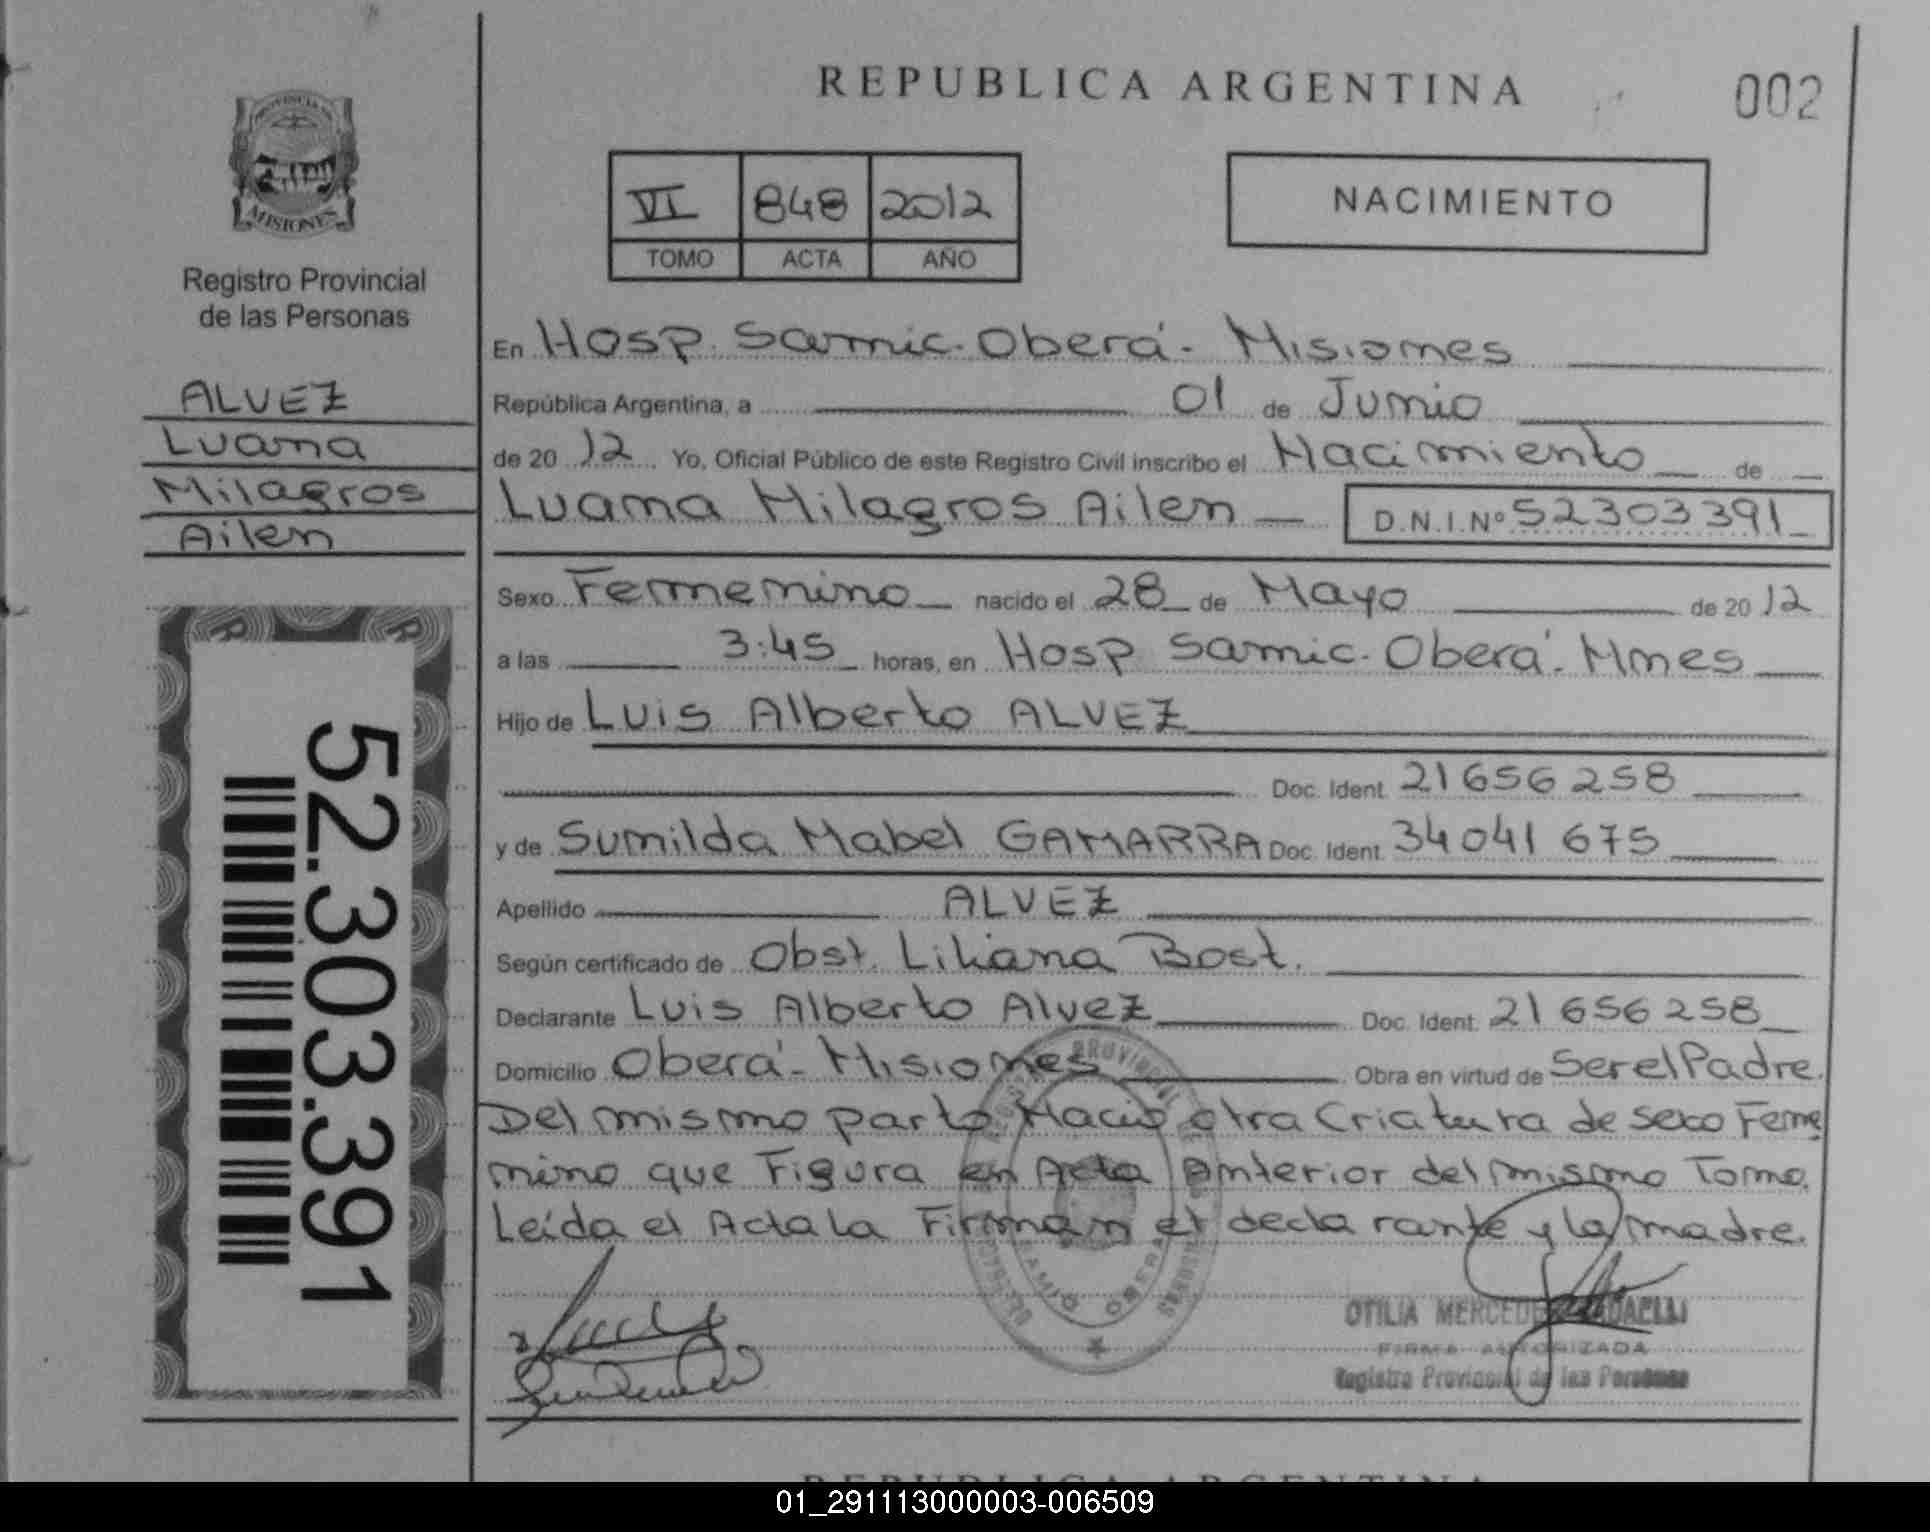 REPUBLICA ARGENTINA
002
PROVINCIA DE
MISIONES
Registro Provincial
de las Personas
ALVEZ
Luana
Milagros
Ailen
52.303.391
VI 848 2012
TOMO ACTA AÑO
NACIMIENTO
En Hosp. Samic. Oberá - Misiones
República Argentina, a 01 de Junio
de 20 12 Yo, Oficial Público de este Registro Civil inscribo el Nacimiento de
Luana Milagros Ailen D.N.I.Nº 52303391
Sexo Femenino nacido el 28 de Mayo de 20 12
a las 3:45 horas, en Hosp Samic. Oberá - Mnes
Hijo de Luis Alberto ALVEZ
Doc. Ident. 21 656 258
y de Sunilda Mabel GAMARRA Doc. Ident. 34 041 675
Apellido ALVEZ
Según certificado de Obst. Liliana Bost.
Declarante Luis Alberto Alvez Doc. Ident. 21 656 258
Domicilio Oberá - Misiones Obra en virtud de Ser el Padre.
Del mismo parto Nacio otra Criatura de sexo Feme
nino que Figura en Acta Anterior del mismo Tomo.
Leída el Acta la Firman el declarante y la madre.
OTILIA
FIRMA AUTORIZADA
Registro Provincial de las Personas
REPUBLICA ARGENTINA
01_291113000003-006509